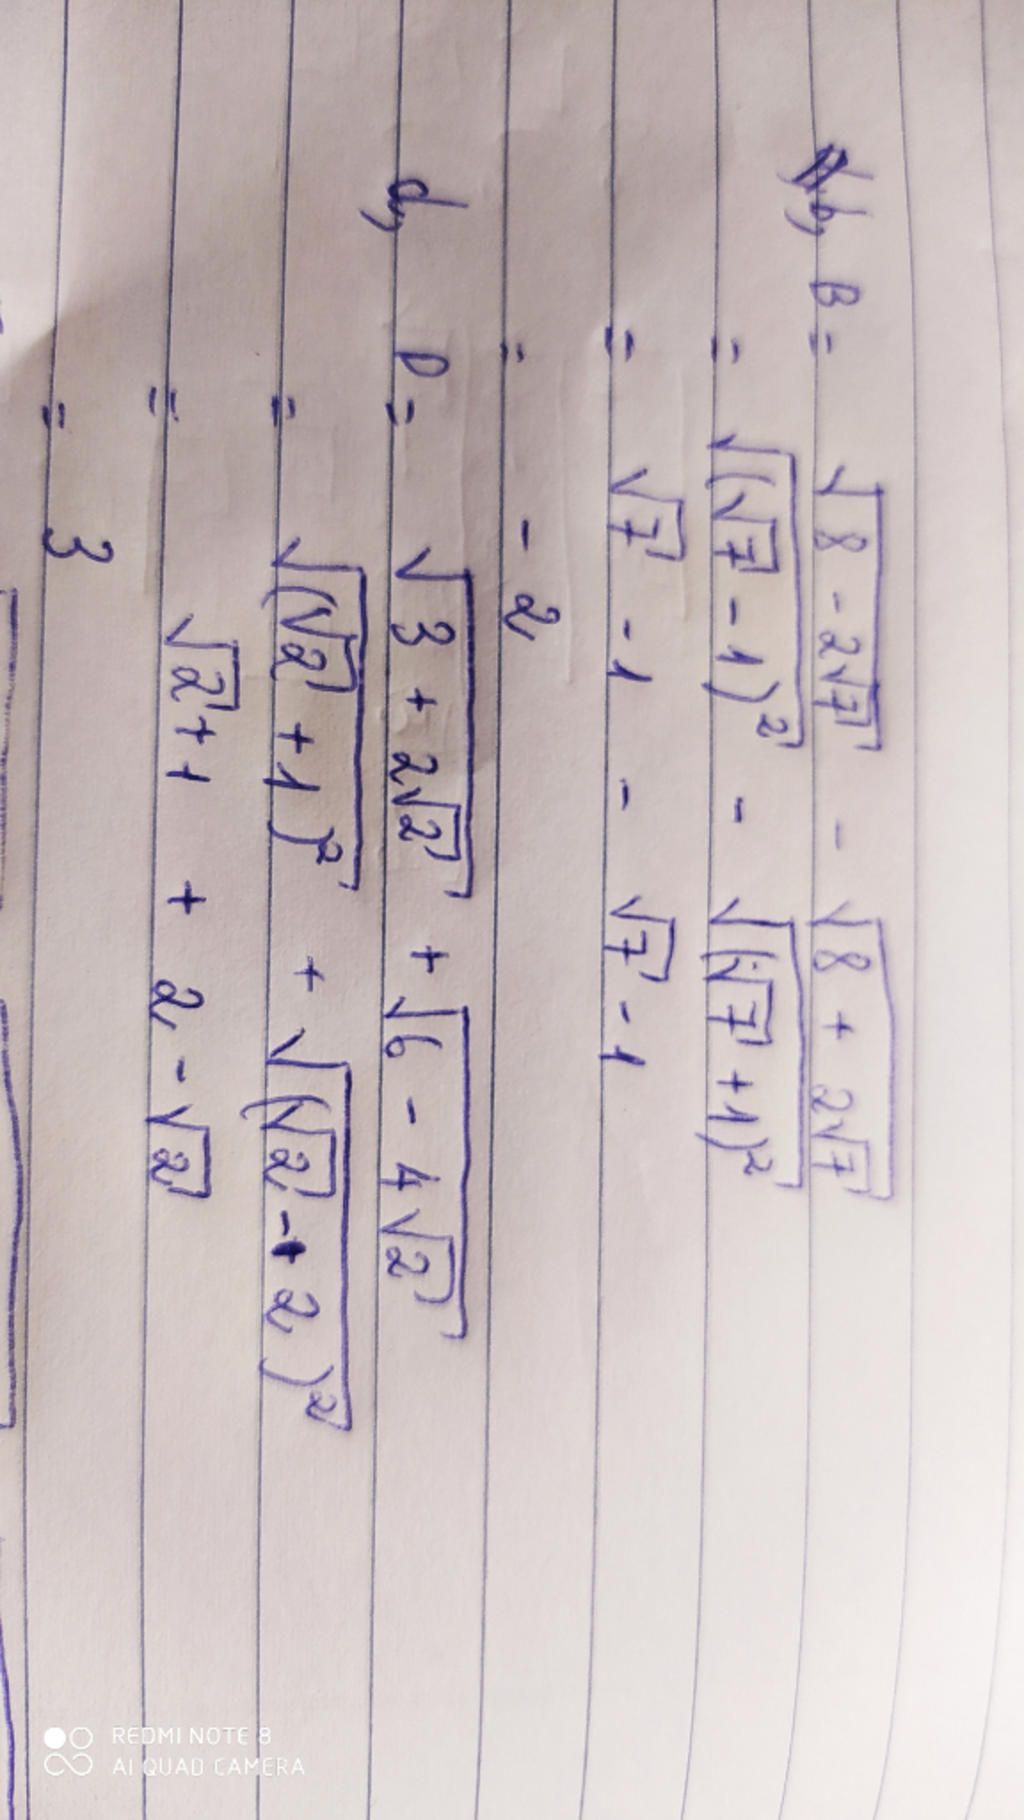 b, B = √(8 - 2√7) - √(8 + 2√7)
= √((√7 - 1)²) - √((√7 + 1)²)
= √7 - 1 - √7 - 1
= - 2
d, D = √(3 + 2√2) + √(6 - 4√2)
= √((√2 + 1)²) + √((√2 - 2)²)
= √2 + 1 + 2 - √2
= 3
REDMI NOTE 8
AI QUAD CAMERA